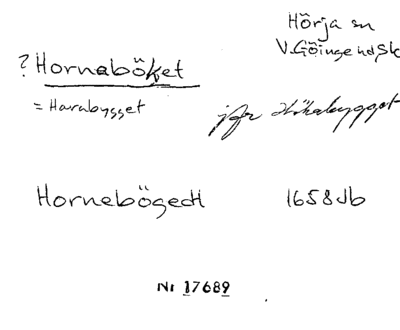 Hörja sn
V. Göinge hd Sk
? Hornaböket
= Harabygget
jfr Hökabygget
Hornebögett 1658 Jb
Nr 17689